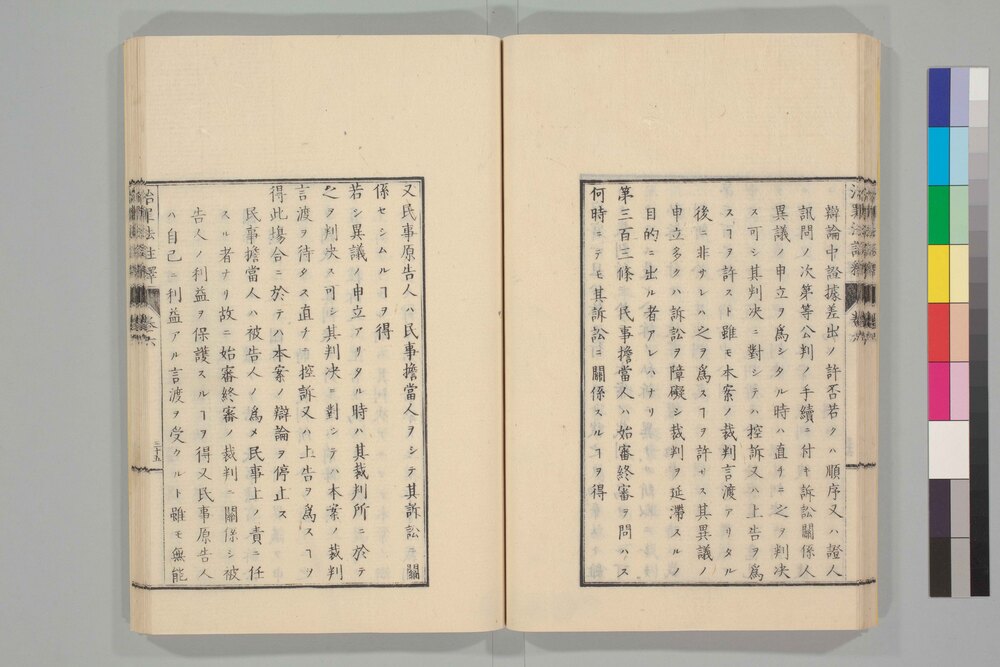 辯論中證據差出ノ許否若クハ順序又ハ證人
訊問ノ次第等公判ノ手續ニ付キ訴訟關係人
異議ノ申立ヲ爲シタル時ハ直チニ之ヲ判决
ス可シ其判决ニ對シテハ控訴又ハ上告ヲ爲
スヿヲ許スト雖モ本案ノ裁判言渡アリタル
後ニ非サレハ之ヲ爲スヿヲ許サス其異議ノ
申立多クハ訴訟ヲ障礙シ裁判ヲ延滯スルノ
目的ニ出ル者アレハナリ
第三百三條 民事擔當人ハ始審終審ヲ問ハス
何時ニテモ其訴訟ニ關係スルヿヲ得
又民事原告人ハ民事擔當人ヲシテ其訴訟ニ關
係セシムルヿヲ得
若シ異議ノ申立アリタル時ハ其裁判所ニ於テ
之ヲ判决ス可シ其判决ニ對シテハ本案ノ裁判
言渡ヲ待タス直チニ控訴又ハ上告ヲ爲スヿヲ
得此塲合ニ於テハ本案ノ辯論ヲ停止ス
民事擔當人ハ被告人ノ爲メ民事上ノ責ニ任
スル者ナリ故ニ始審終審ノ裁判ニ關係シ被
告人ノ利益ヲ保護スルヿヲ得又民事原告人
ハ自己ニ利益アル言渡ヲ受クルト雖モ無能
治罪法註釋 卷六
三十五